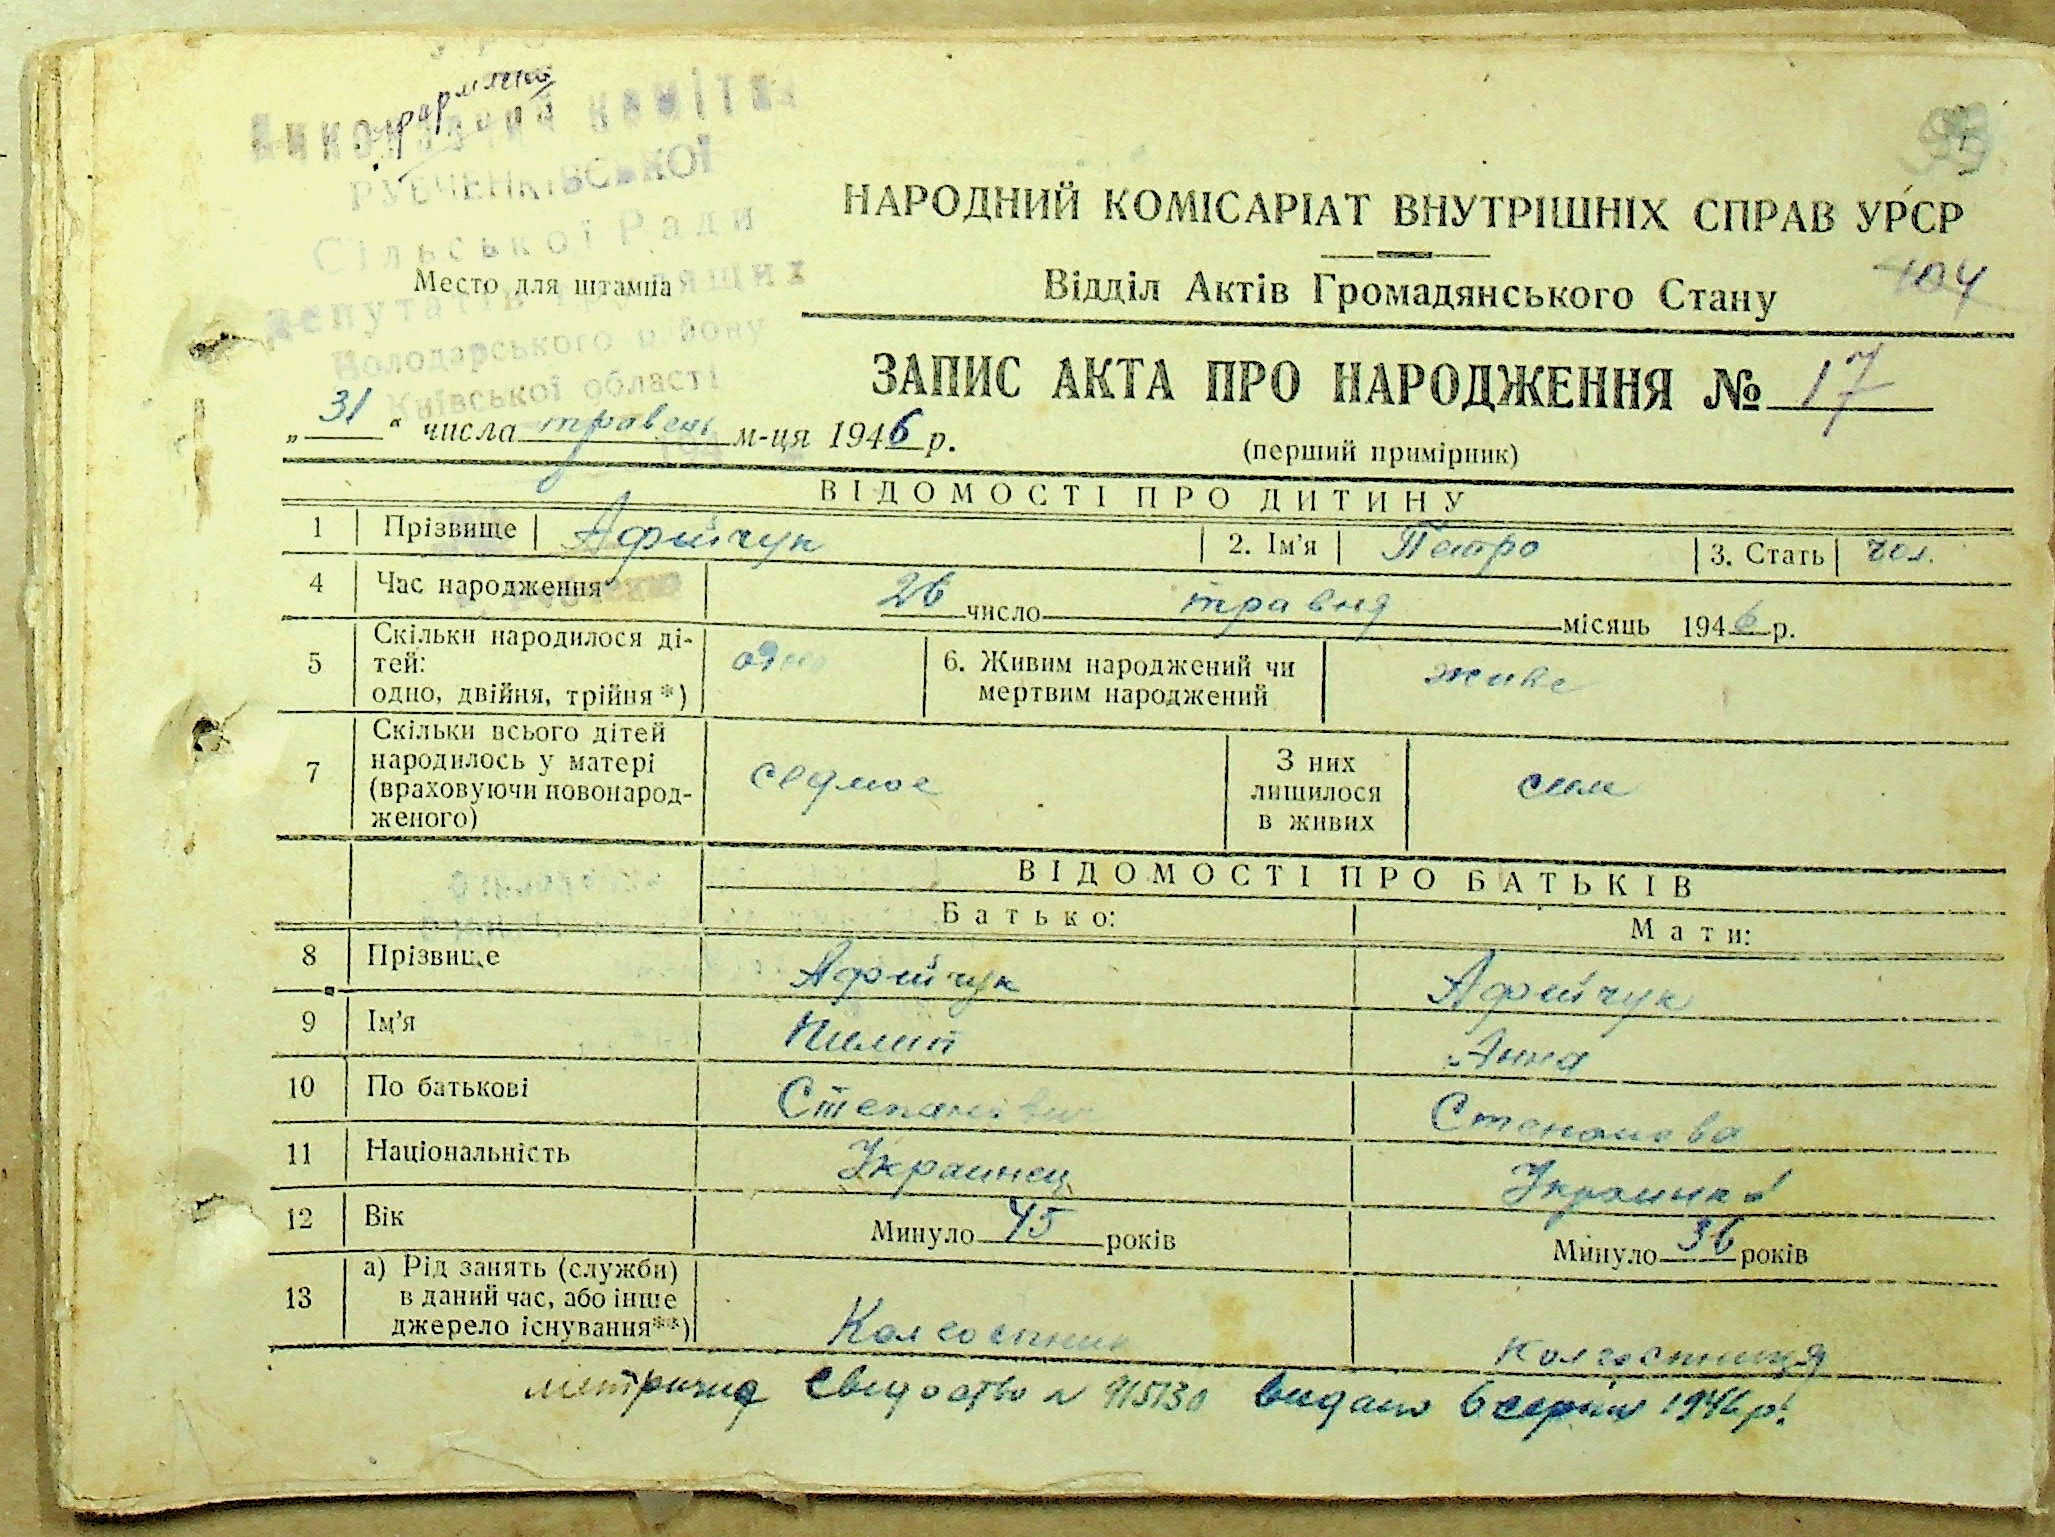 Виконавчий комітет
РУБЧЕНКІВСЬКОЇ
Сільської Ради
депутатів трудящих
Володарського району
Київської області
Место для штампа
99
НАРОДНИЙ КОМІСАРІАТ ВНУТРІШНІХ СПРАВ УРСР
Відділ Актів Громадянського Стану
104
ЗАПИС АКТА ПРО НАРОДЖЕННЯ № 17
„ 31 “ числа травень м-ця 1946 р.
(перший примірник)
ВІДОМОСТІ ПРО ДИТИНУ
1 Прізвище Афійчук 2. Ім'я Петро 3. Стать чол.
4 Час народження 26 число травня місяць 1946 р.
5 Скільки народилося ді-
тей:
одно, двійня, трійня*) одно
6. Живим народжений чи
мертвим народжений живе
7 Скільки всього дітей
народилось у матері
(враховуючи новонарод-
женого) седмое
З них
лишилося
в живих сим
ВІДОМОСТІ ПРО БАТЬКІВ
Батько: Мати:
8 Прізвище Афійчук Афійчук
9 Ім'я Пилип Анна
10 По батькові Степанович Степанова
11 Національність Украинец Украинка
12 Вік Минуло 45 років Минуло 36 років
13 а) Рід занять (служби)
в даний час, або інше
джерело існування**) Колгоспник колгоспниця
метричне свидоство N 915130 видано 6 серпня 1946 р.